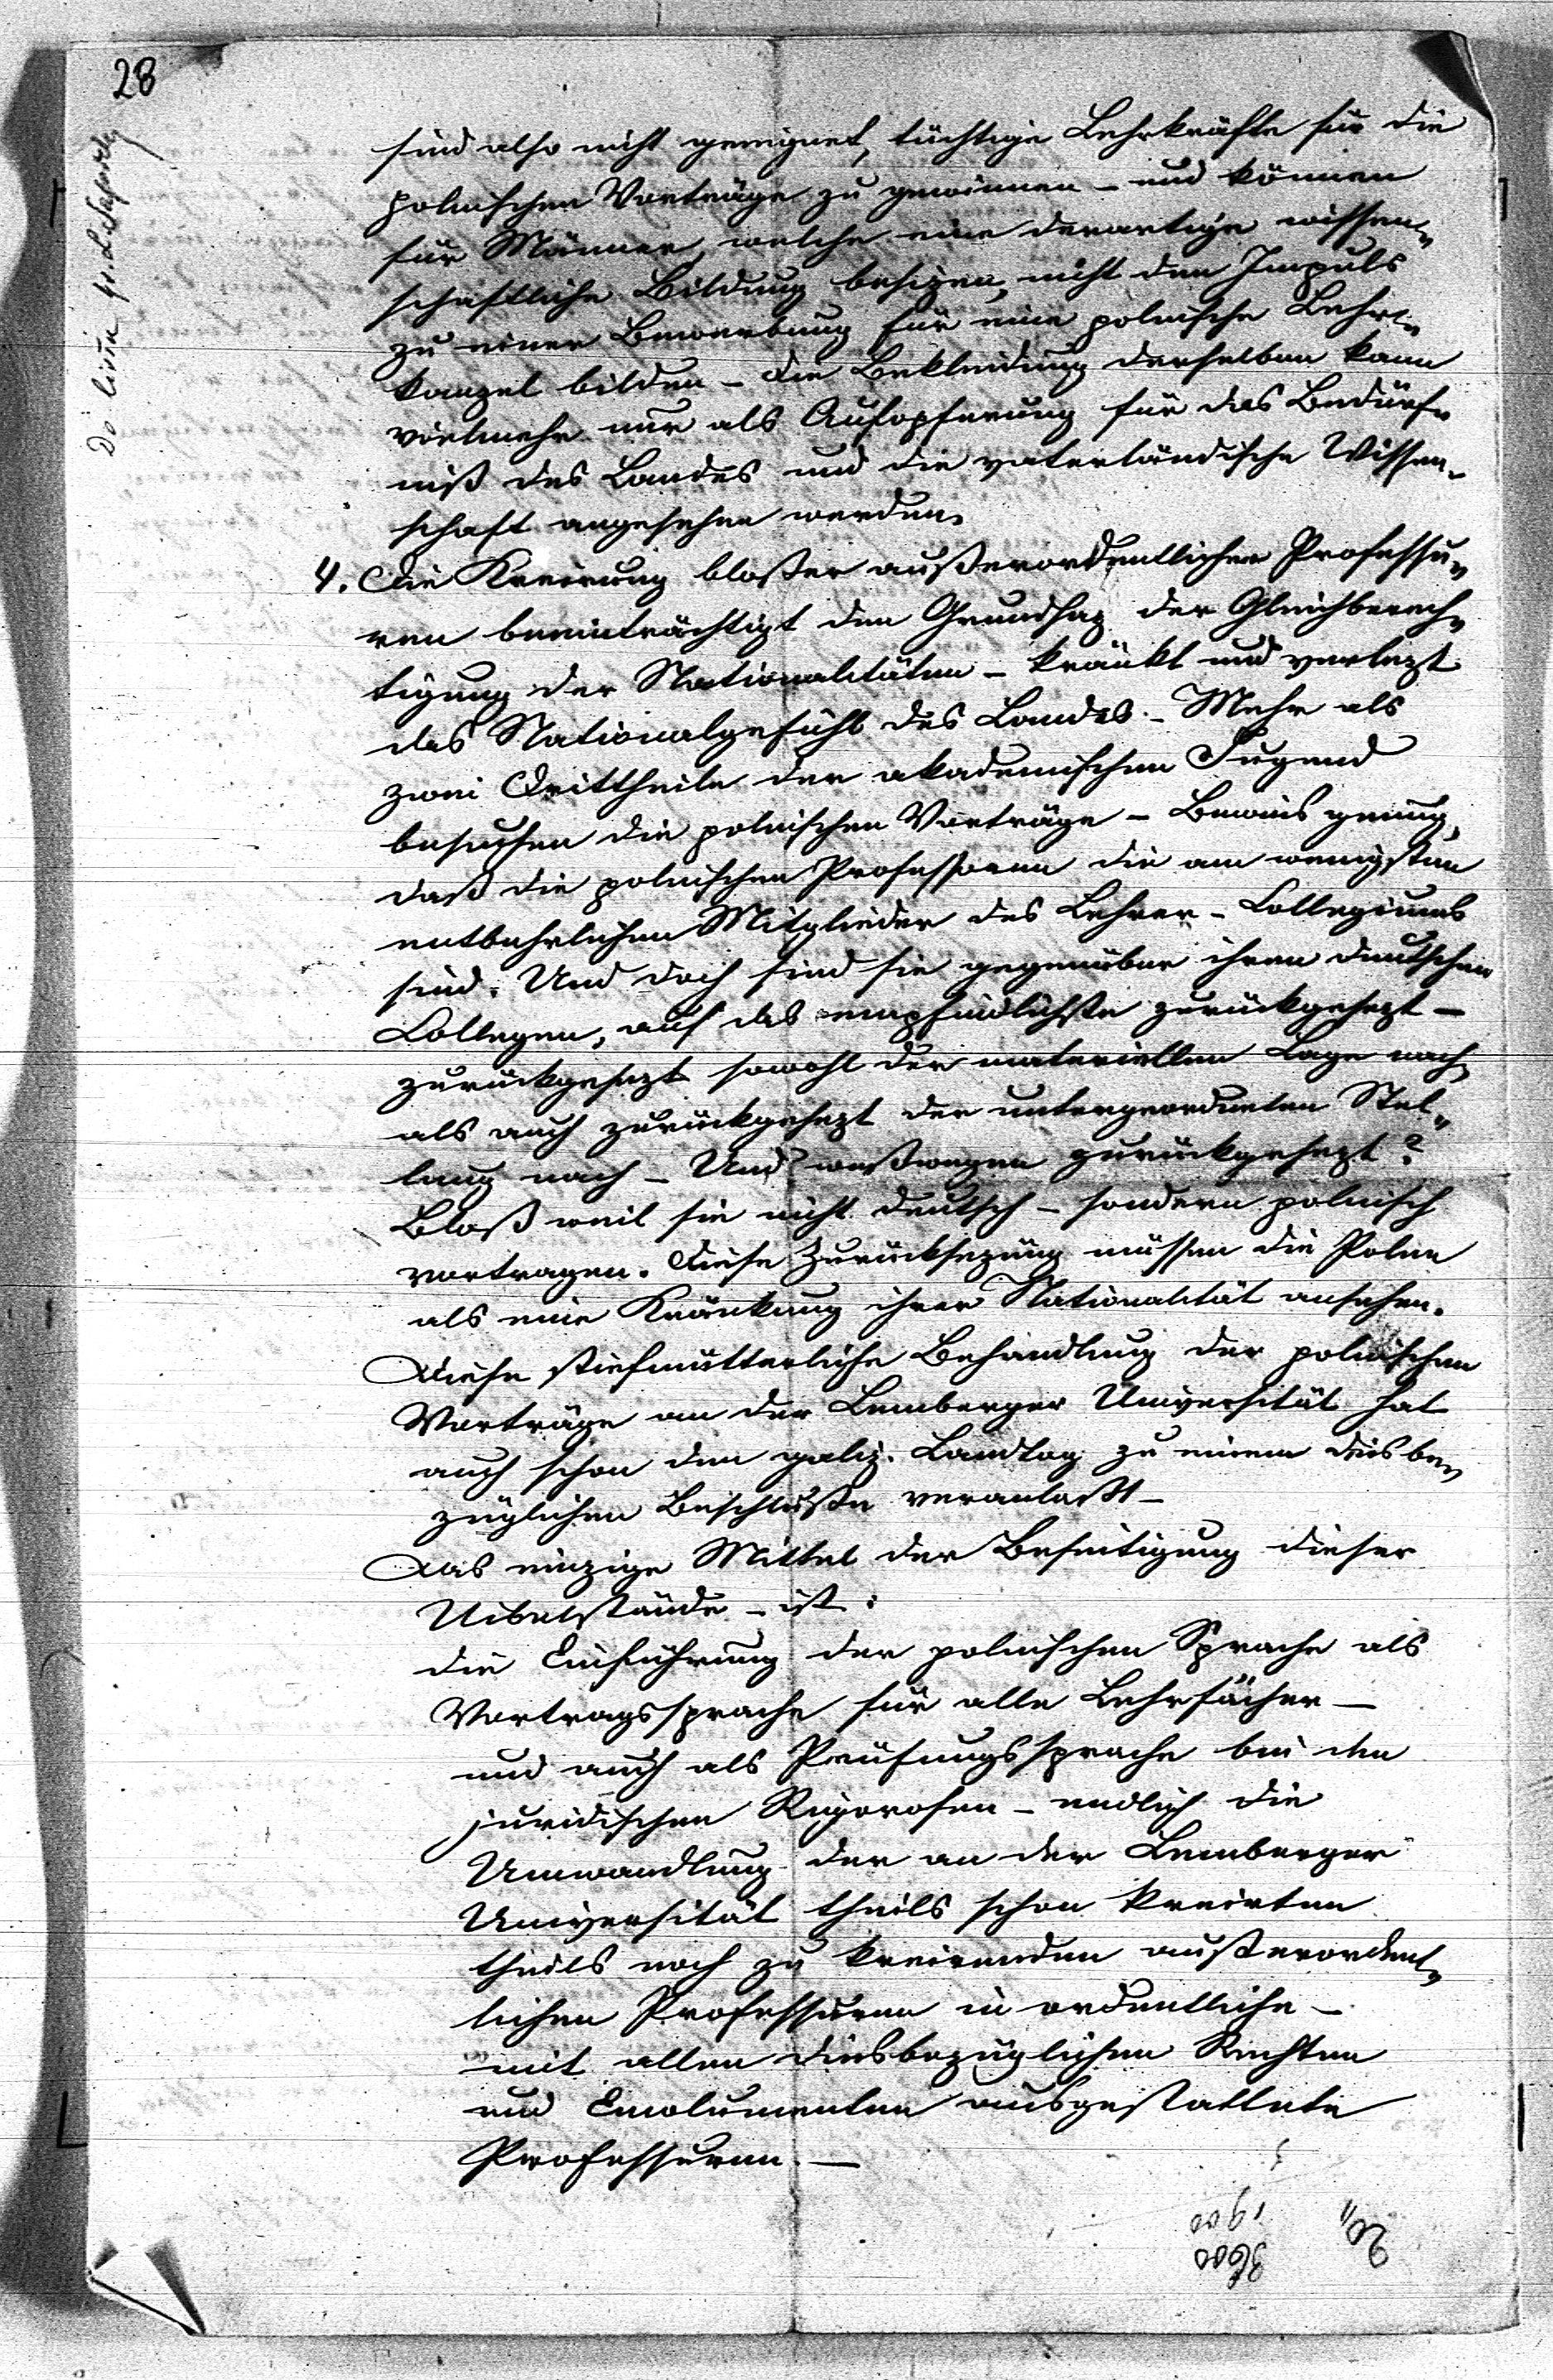 28
sind also nicht geeignet, tüchtige Lehrkräfte für die
polnischen Vorträge zu gewinnen – und können
für Männer, welche eine derartige wissen„
schaftliche Bildung besizen, nicht den Impuls
zu einer Bewerbung für eine polnische Lehr„
kanzel bilden – die Bekleidung derselben kann
vielmehr nur als Aufopferung für das Bedürf„
niß des Landes und die vaterländische Wissen„
schaft angesehen werden.
4. Die Kreirung bloßer außerordentlicher Professu„
ren beeinträchtigt den Grundsaz der Gleichberech„
tigung der Nationalitäten – kränkt und verlezt
das Nationalgefühl des Landes. – Mehr als
zwei Drittheile der akademischen Jugend
besuchen die polnischen Vorträge – Beweis genug,
daß die polnischen Professoren die am wenigsten
entbehrlichen Mitglieder des Lehrer-Collegiums
sind. Und doch sind sie gegenüber ihren deutschen
Collegen, auf das empfindlichste zurückgesezt –
zurückgesezt sowohl der materiellen Lage nach,
als auch zurückgesezt der untergeordneten Stel„
lung nach – Und weßwegen zurückgesezt?
Bloß weil sie nicht deutsch – sondern polnisch
vortragen. Diese Zurücksezung müssen die Polen
als eine Kränkung ihrer Nationalität ansehen.
Diese stiefmütterliche Behandlung der polnischen
Vorträge an der Lemberger Universität hat
auch schon den galiz. Landtag zu einem diesbe„
züglichen Beschluße veranlaßt –
Das einzige Mittel der Beseitigung dieser
Uibelstände – ist:
die Einführung der polnischen Sprache als
Vortragssprache für alle Lehrfächer –
und auch als Prüfungssprache bei den
juridischen Rigorosen – endlich die
Umwandlung der an der Lemberger
Universität theils schon kreirten
theils noch zu kreirenden außerordent„
lichen Professuren in ordentliche –
mit allen diesbezüglichen Rechten
und Emolumenten ausgestattete
Professuren. –
3600
1900